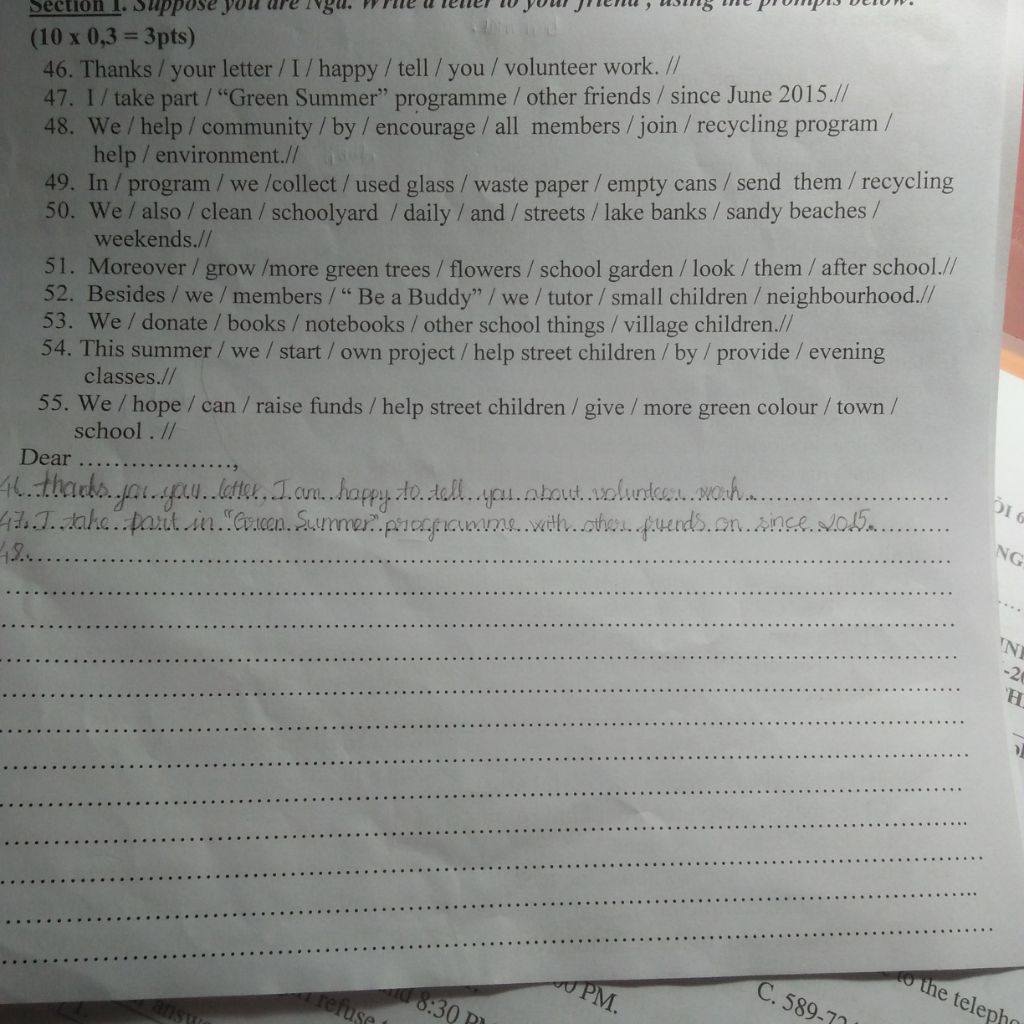 Section 1. Suppose you are Nga. Write a letter to your friend , using the prompts below.
(10 x 0,3 = 3pts)
46. Thanks / your letter / I / happy / tell / you / volunteer work. //
47. I / take part / “Green Summer” programme / other friends / since June 2015.//
48. We / help / community / by / encourage / all members / join / recycling program /
help / environment.//
49. In / program / we /collect / used glass / waste paper / empty cans / send them / recycling
50. We / also / clean / schoolyard / daily / and / streets / lake banks / sandy beaches /
weekends.//
51. Moreover / grow /more green trees / flowers / school garden / look / them / after school.//
52. Besides / we / members / “ Be a Buddy” / we / tutor / small children / neighbourhood.//
53. We / donate / books / notebooks / other school things / village children.//
54. This summer / we / start / own project / help street children / by / provide / evening
classes.//
55. We / hope / can / raise funds / help street children / give / more green colour / town /
school . //
Dear ..................,
46. thanks for your letter. I am happy to tell you about volunteer work.
47. I take part in "Green Summer" programme with other friends on since 2015.
48.
refuse
8:30 PM
PM.
C. 589-
to the